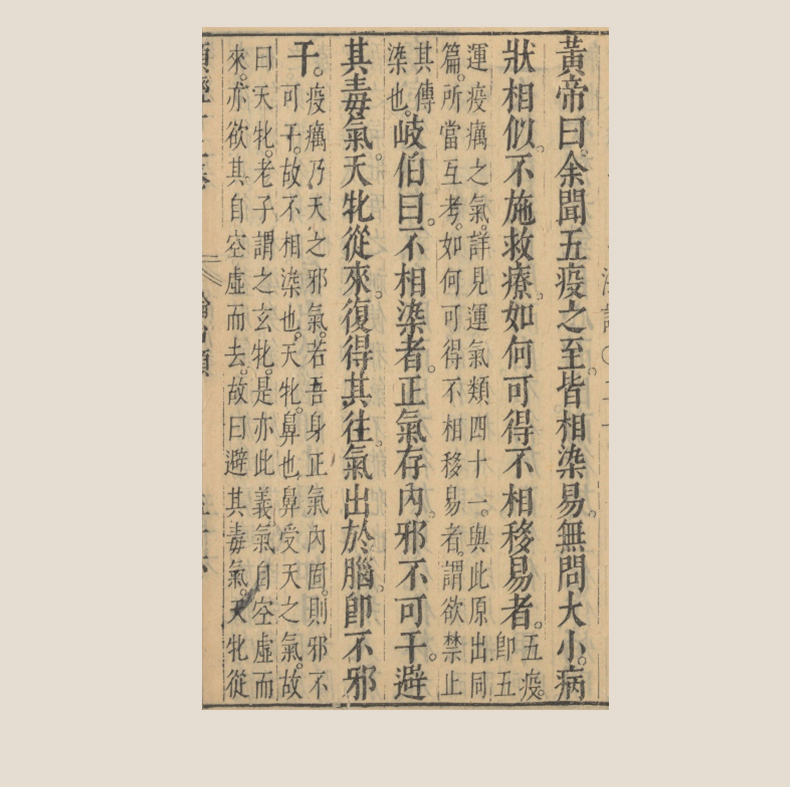 黃帝曰。余聞五疫之至。皆相染易。無問大小。病
狀相似。不施救療。如何可得不相移易者。五疫。
即五
運疫癘之氣。詳見運氣類四十一。與此原出同
篇。所當互考。如何可得不相移易者。謂欲禁止
其傳
染也。岐伯曰。不相染者。正氣存內。邪不可干。避
其毒氣。天牝從來。復得其往。氣出於腦。即不邪
干。疫癘乃天之邪氣。若吾身正氣內固。則邪不
可干。故不相染也。天牝。鼻也。鼻受天之氣。故
曰天牝。老子謂之玄牝。是亦此義。氣自空虛而
來。亦欲其自空虛而去。故曰避其毒氣。天牝從